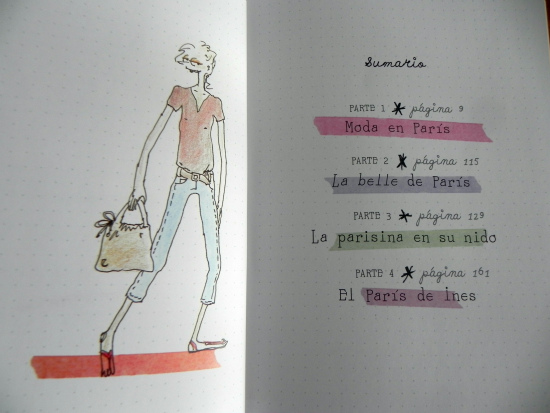 Sumario
PARTE 1 * página 9
Moda en París
PARTE 2 * página 115
La belle de París
PARTE 3 * página 129
La parisina en su nido
PARTE 4 * página 161
El París de Ines